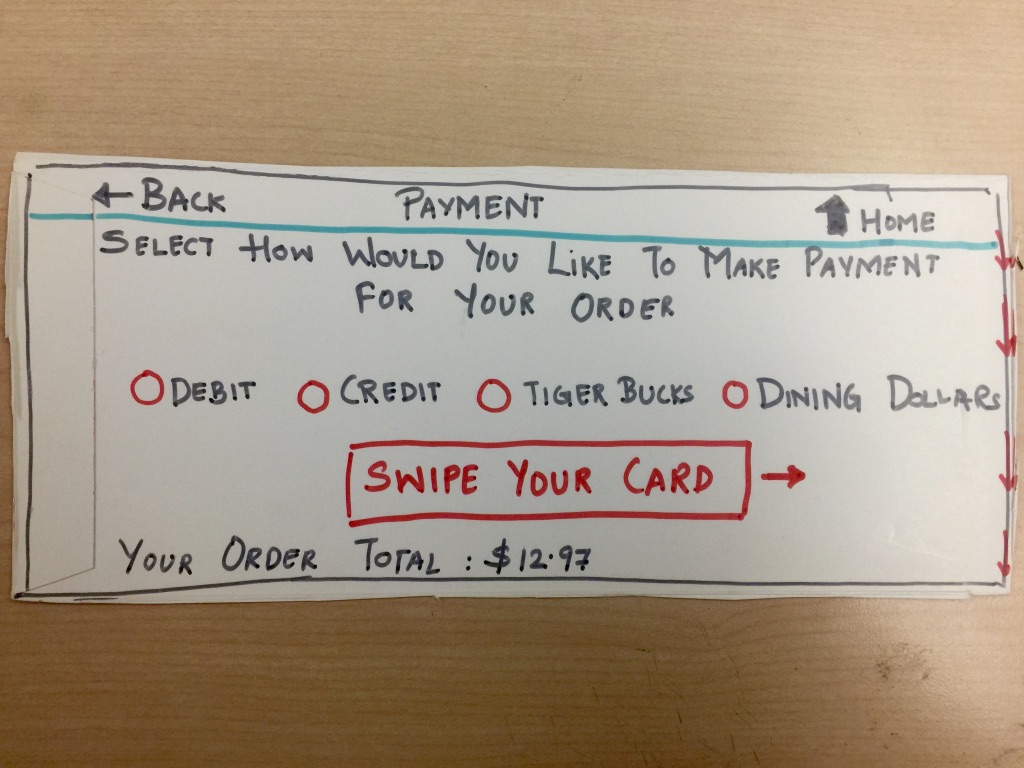 ← BACK PAYMENT HOME
SELECT HOW WOULD YOU LIKE TO MAKE PAYMENT
FOR YOUR ORDER
DEBIT CREDIT TIGER BUCKS DINING DOLLARS
SWIPE YOUR CARD →
YOUR ORDER TOTAL : $12.97